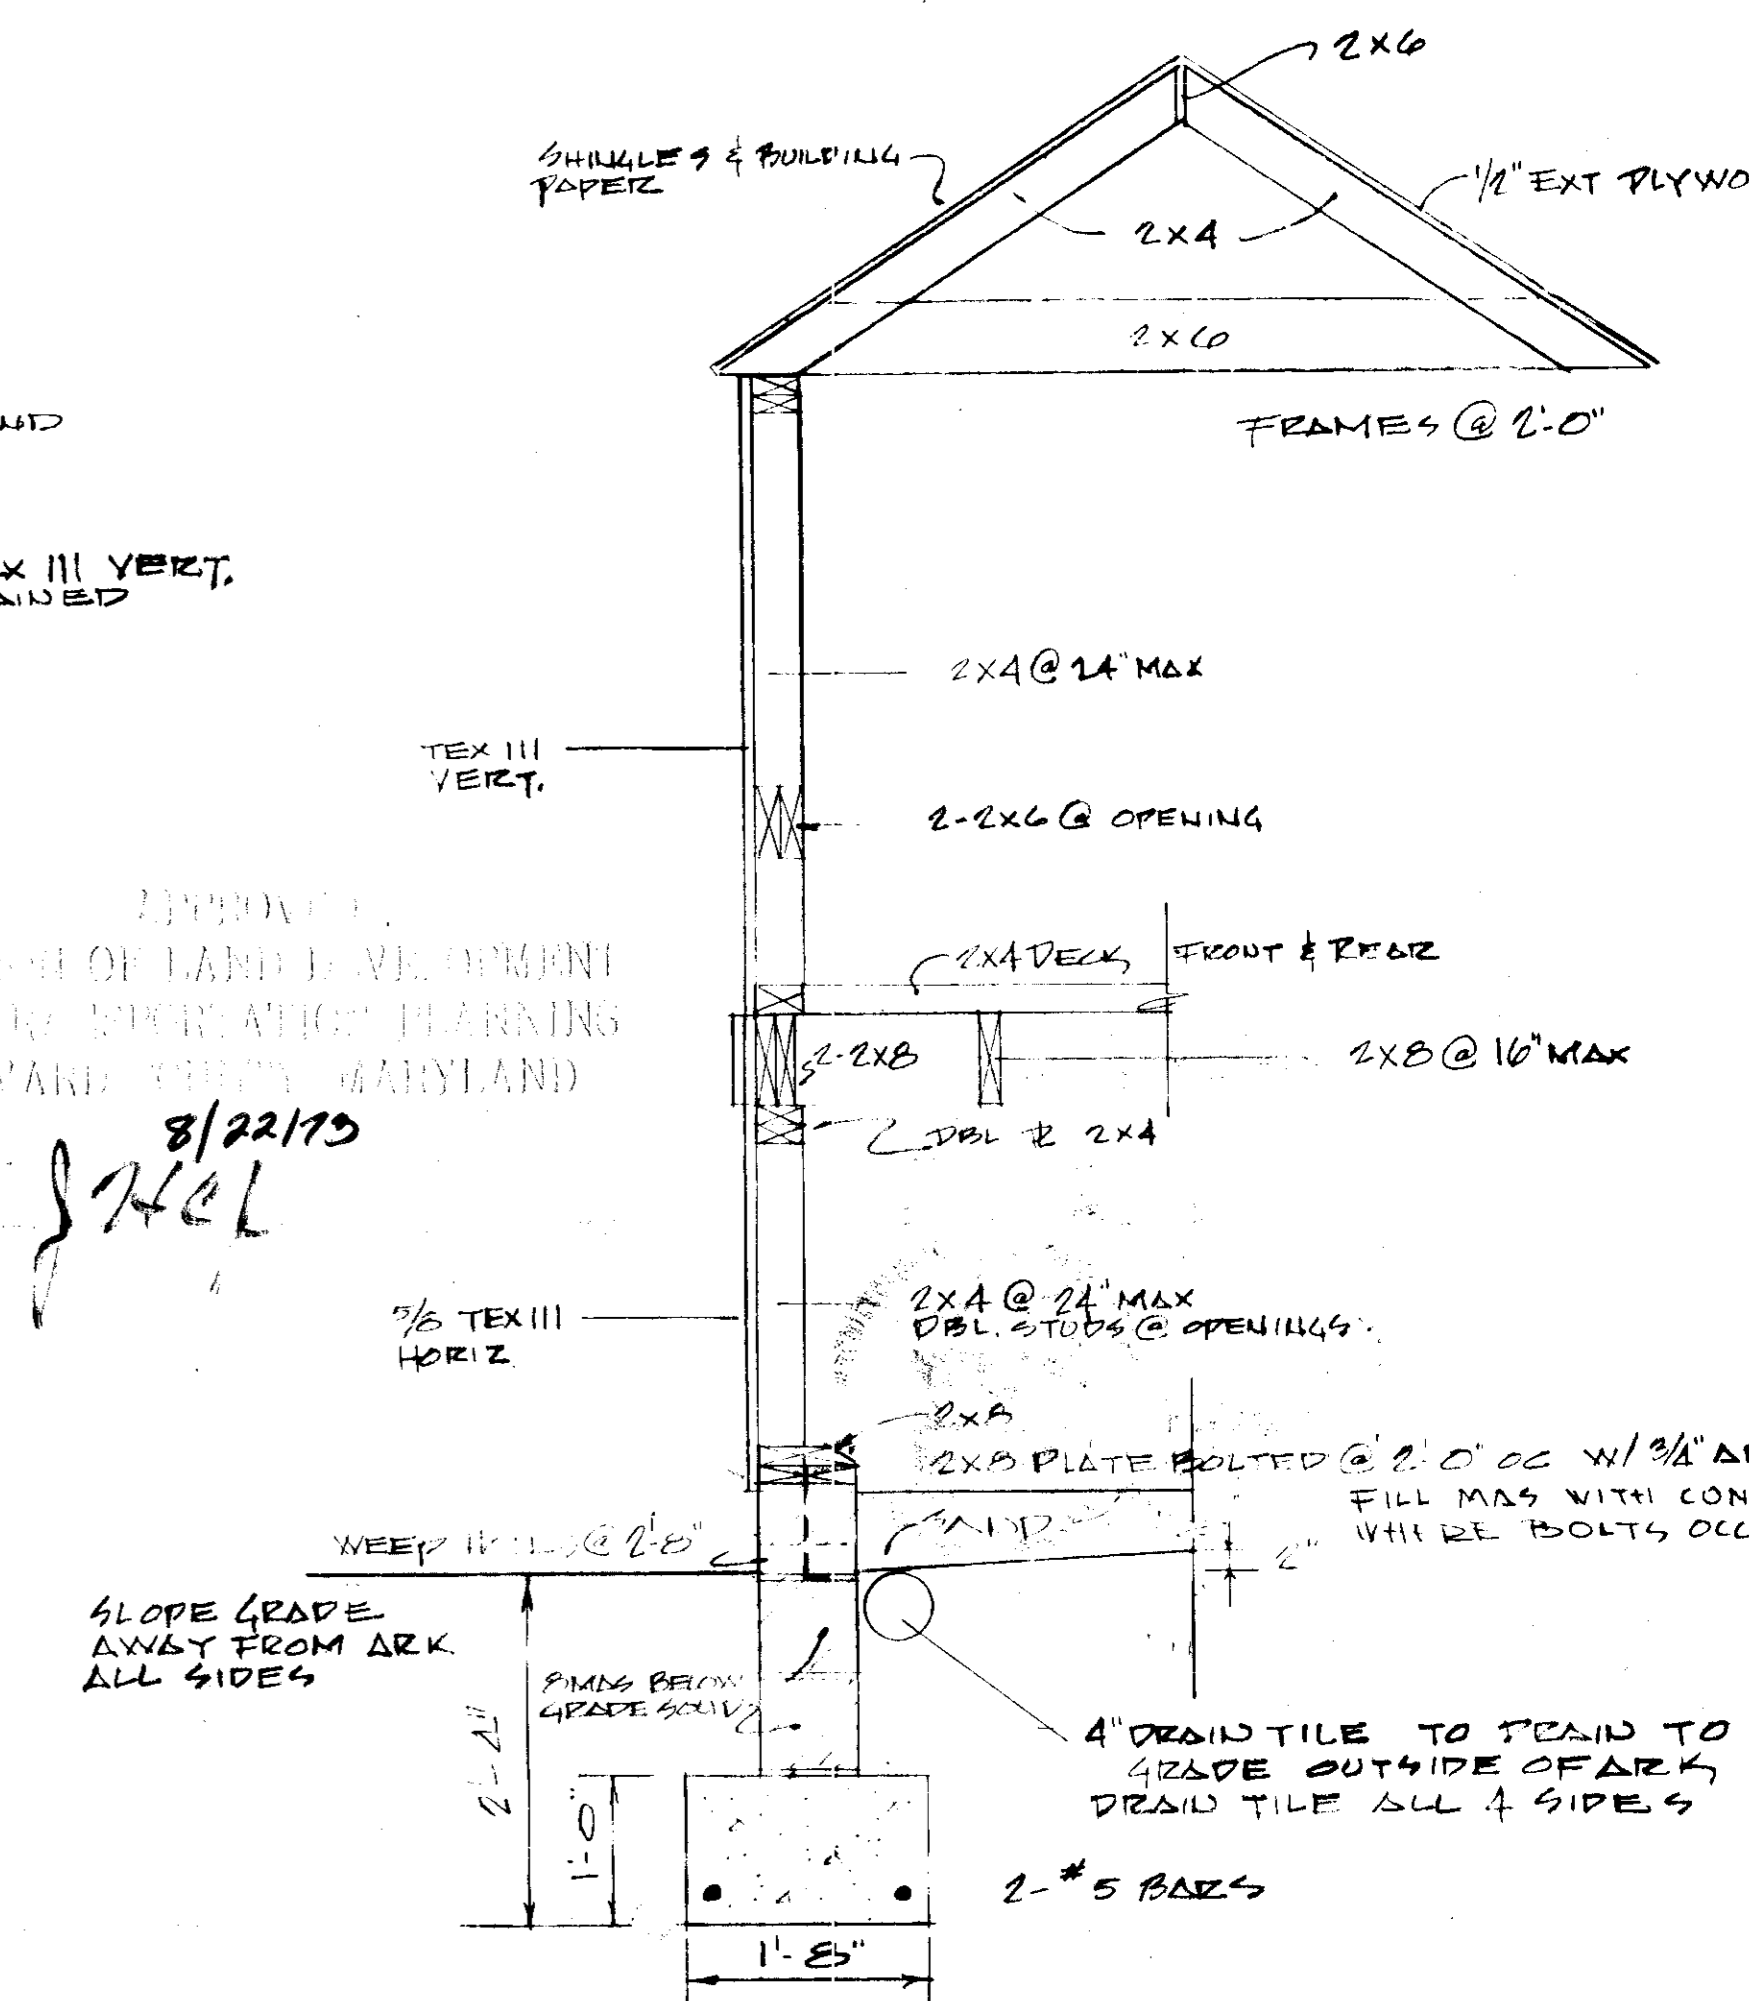 2X6
SHINGLES & BUILDING
PAPER
1/2" EXT PLYWO
2X4
2X6
FRAMES @ 2'-0"
X 111 VERT.
AINED
2X4 @ 24" MAX
TEX 111
VERT.
2-2X6 @ OPENING
OF LAND DEVELOPMENT
PLANNING
MARYLAND
8/22/79
2X4 DECK
FRONT & REAR
2-2X8
2X8 @ 16" MAX
DBL PL 2X4
5/8 TEX 111
HORIZ
2X4 @ 24" MAX
DBL. STUDS @ OPENINGS
2X8
2X8 PLATE BOLTED @ 2'-0" OC W/ 3/4"
FILL MAS WITH CON
WHERE BOLTS OCC
WEEP @ 2'-8"
2"
SLOPE GRADE
AWAY FROM ARK
ALL SIDES
8 MAS BELOW
GRADE SOLID
2'-4"
1'-0"
4" DRAIN TILE TO DRAIN TO
GRADE OUTSIDE OF ARK
DRAIN TILE ALL 4 SIDES
2-#5 BARS
1'-8"